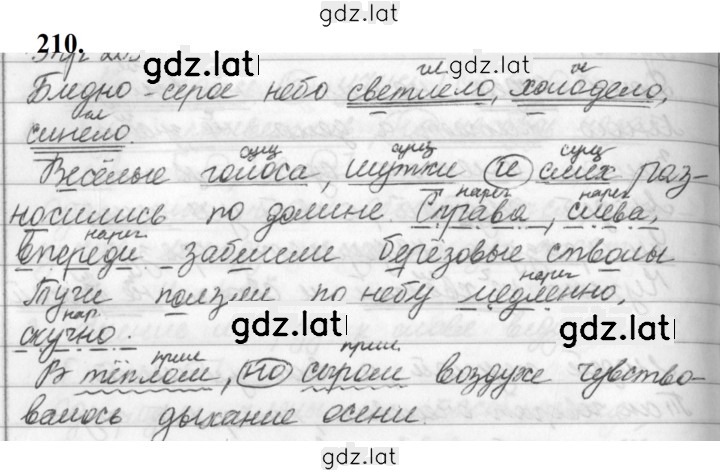 gdz.lat
210.
gdz.lat
gdz.lat
гл гл
Бледно-серое небо светлело, холодело,
гл
синело.
сущ сущ сущ
Весёлые голоса, шутки и смех раз-
нареч нареч
носились по долине Справа, слева,
нареч.
впереди забелели берёзовые стволы
нареч
Тучи ползли по небу медленно,
нар.
скучно.
gdz.lat
gdz.lat
прил прил.
В тёплом, но сыром воздухе чувство-
валось дыхание осени.
gdz.lat